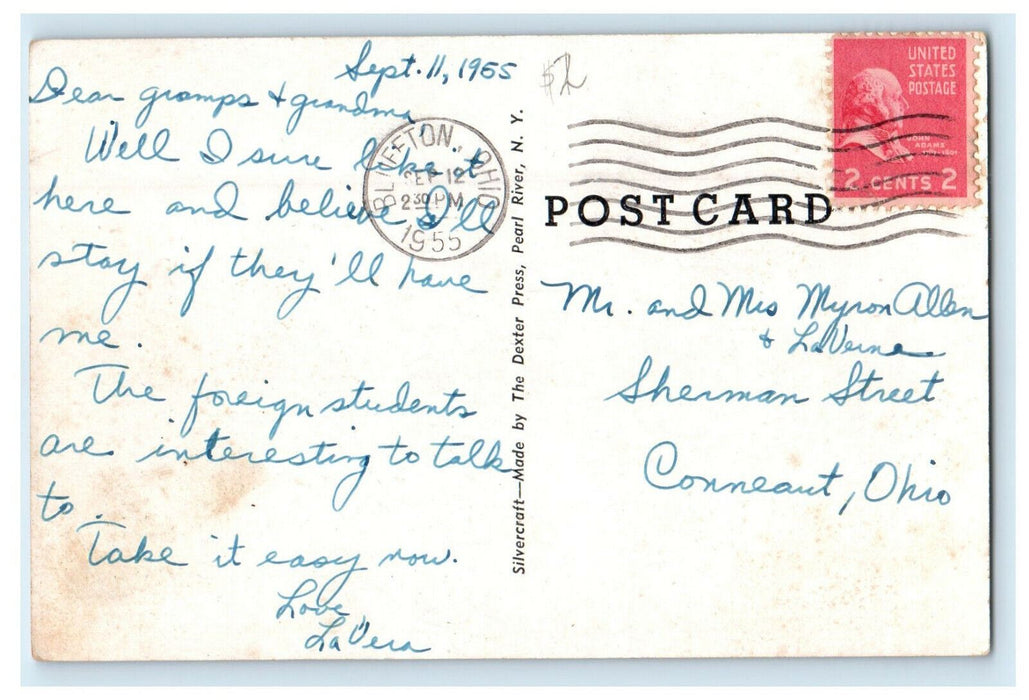 Sept. 11, 1955
Dear gramps & grandma,
Well I sure like it
here and believe I'll
stay if they'll have
me.
The foreign students
are interesting to talk
to.
Take it easy now.
Love
LaVera
BLUFFTON, OHIO
SEP 12
2 30 PM
1955
Silvercraft—Made by The Dexter Press, Pearl River, N. Y.
$2
UNITED
STATES
POSTAGE
JOHN
ADAMS
2 CENTS 2
POST CARD
Mr. and Mrs Myron Allen
& LaVerne
Sherman Street
Conneaut, Ohio